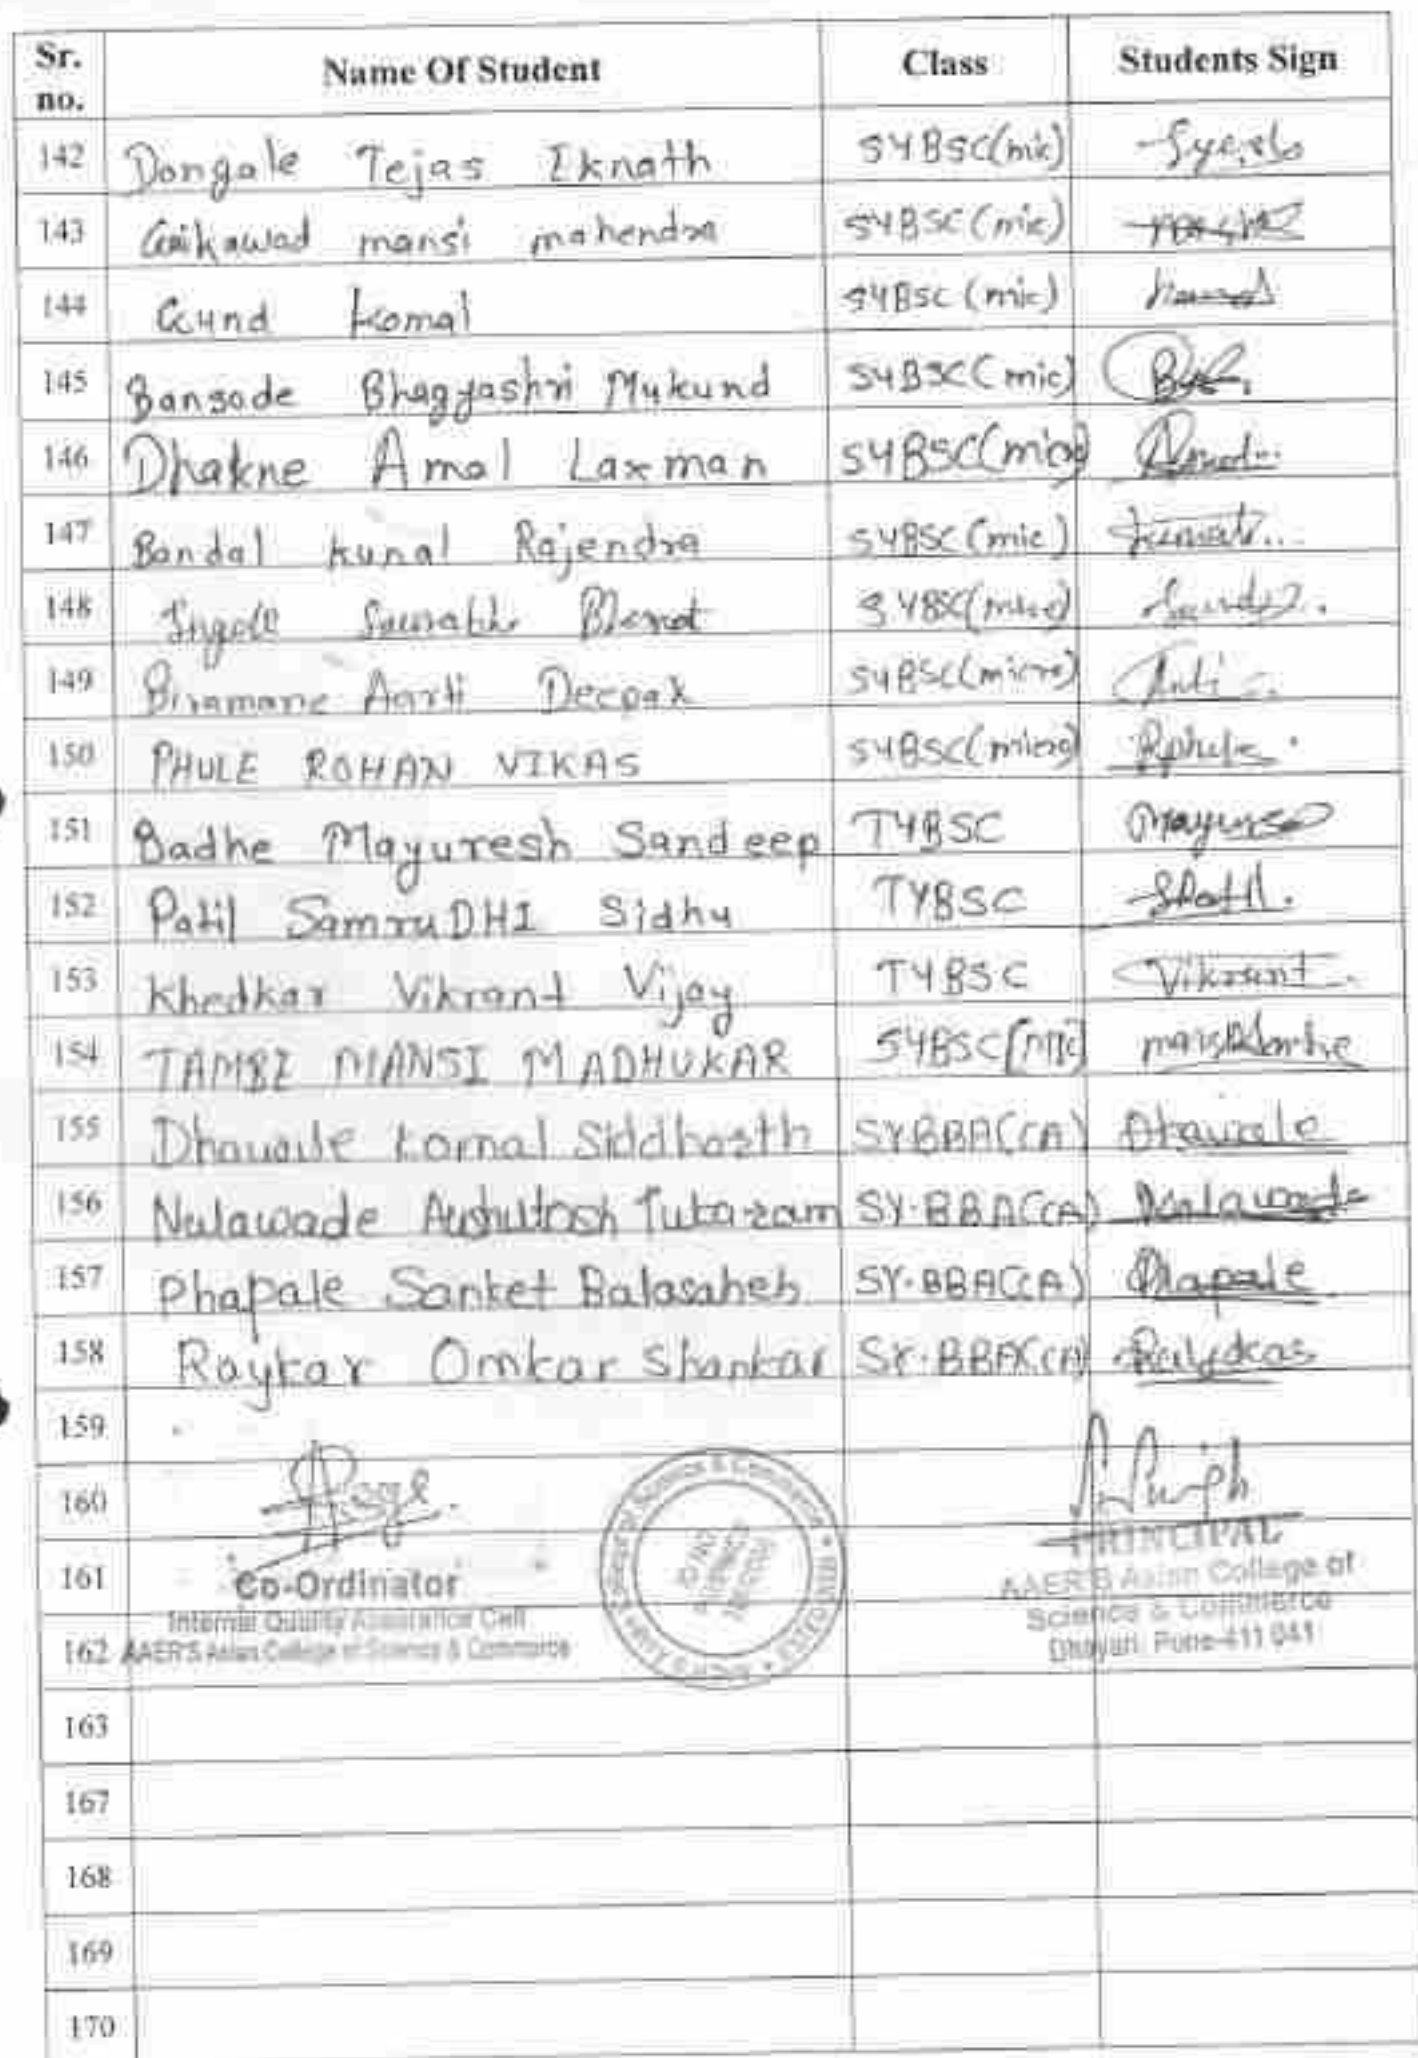 Sr. no. Name Of Student Class Students Sign
142 Dongale Tejas Eknath SYBSC(mic)
143 Gaikawad mansi mahendra SYBSC(mic)
144 Gund komal SYBSC(mic)
145 Bansode Bhagyashri Mukund SYBSC(mic)
146 Dhakne Amol Laxman SYBSC(micro)
147 Bandal kunal Rajendra SYBSC(mic)
148 Ingole Saurabh SYBSC(micro)
149 Biramane Aarti Deepak SYBSC(micro)
150 PHULE ROHAN VIKAS SYBSC(micro) Rphule.
151 Badhe Mayuresh Sandeep TYBSC
152 Patil SamruDHI Sidhu TYBSC SPatil.
153 Khedkar Vikrant Vijay TYBSC Vikrant.
154 TAMBE MANSI MADHUKAR SYBSC[mic]
155 Dhawale komal Siddharth SYBBA(CA) Dhawale
156 Nalawade Aushutosh Tukaram SY.BBA(CA) Nalawade
157 Phapale Sanket Balasaheb SY.BBA(CA) Phapale
158 Raykar Omkar Shankar SY.BBA(CA)
159
160
161 Co-Ordinator PRINCIPAL
Internal Quality Assurance Cell AAER'S Asian College of
162 AAER'S Asian College of Science & Commerce Science & Commerce
Dhayari, Pune-411 041
163
167
168
169
170